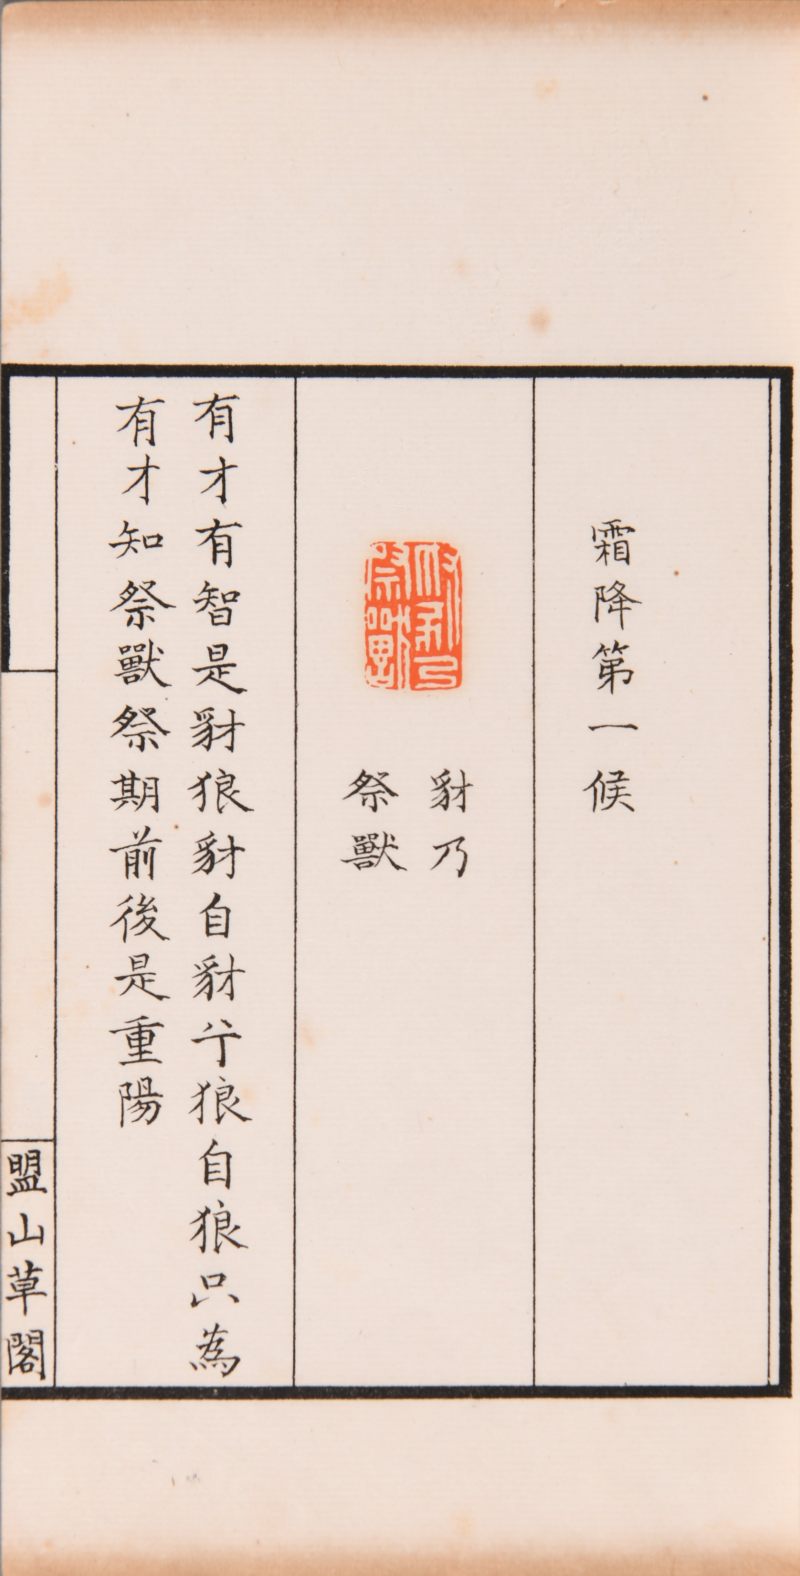 霜降第一候
豺乃
祭獸
豺乃
祭獸
有才有智是豺狼豺自豺兮狼自狼只為
有才知祭獸祭期前後是重陽
盟山草閣